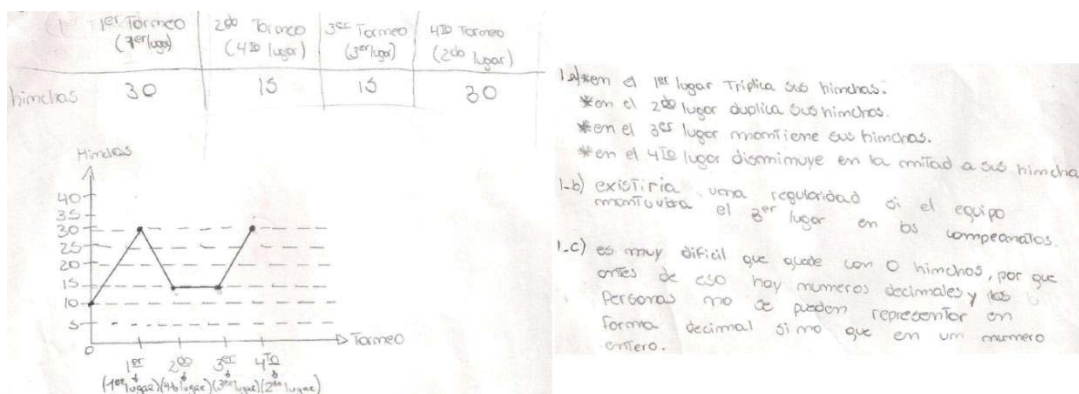 1er Torneo 2do Torneo 3er Torneo 4to Torneo
(1er lugar) (4to lugar) (3er lugar) (2do lugar)
hinchas 30 15 15 30
Hinchas
40
35
30
25
20
15
10
5
0
Torneo
1er 2do 3er 4to
(1er lugar) (4to lugar) (3er lugar) (2do lugar)
1.a) *en el 1er lugar Triplica sus hinchas.
*en el 2do lugar duplica sus hinchas.
*en el 3er lugar mantiene sus hinchas.
*en el 4to lugar disminuye en la mitad a sus hincha
1-b) existiria una regularidad si el equipo
mantuviera el 3er lugar en los campeonatos.
1.c) es muy dificil que quede con 0 hinchas, por que
antes de eso hay numeros decimales y las
Personas no se pueden representar en
forma decimal si no que en un numero
entero.